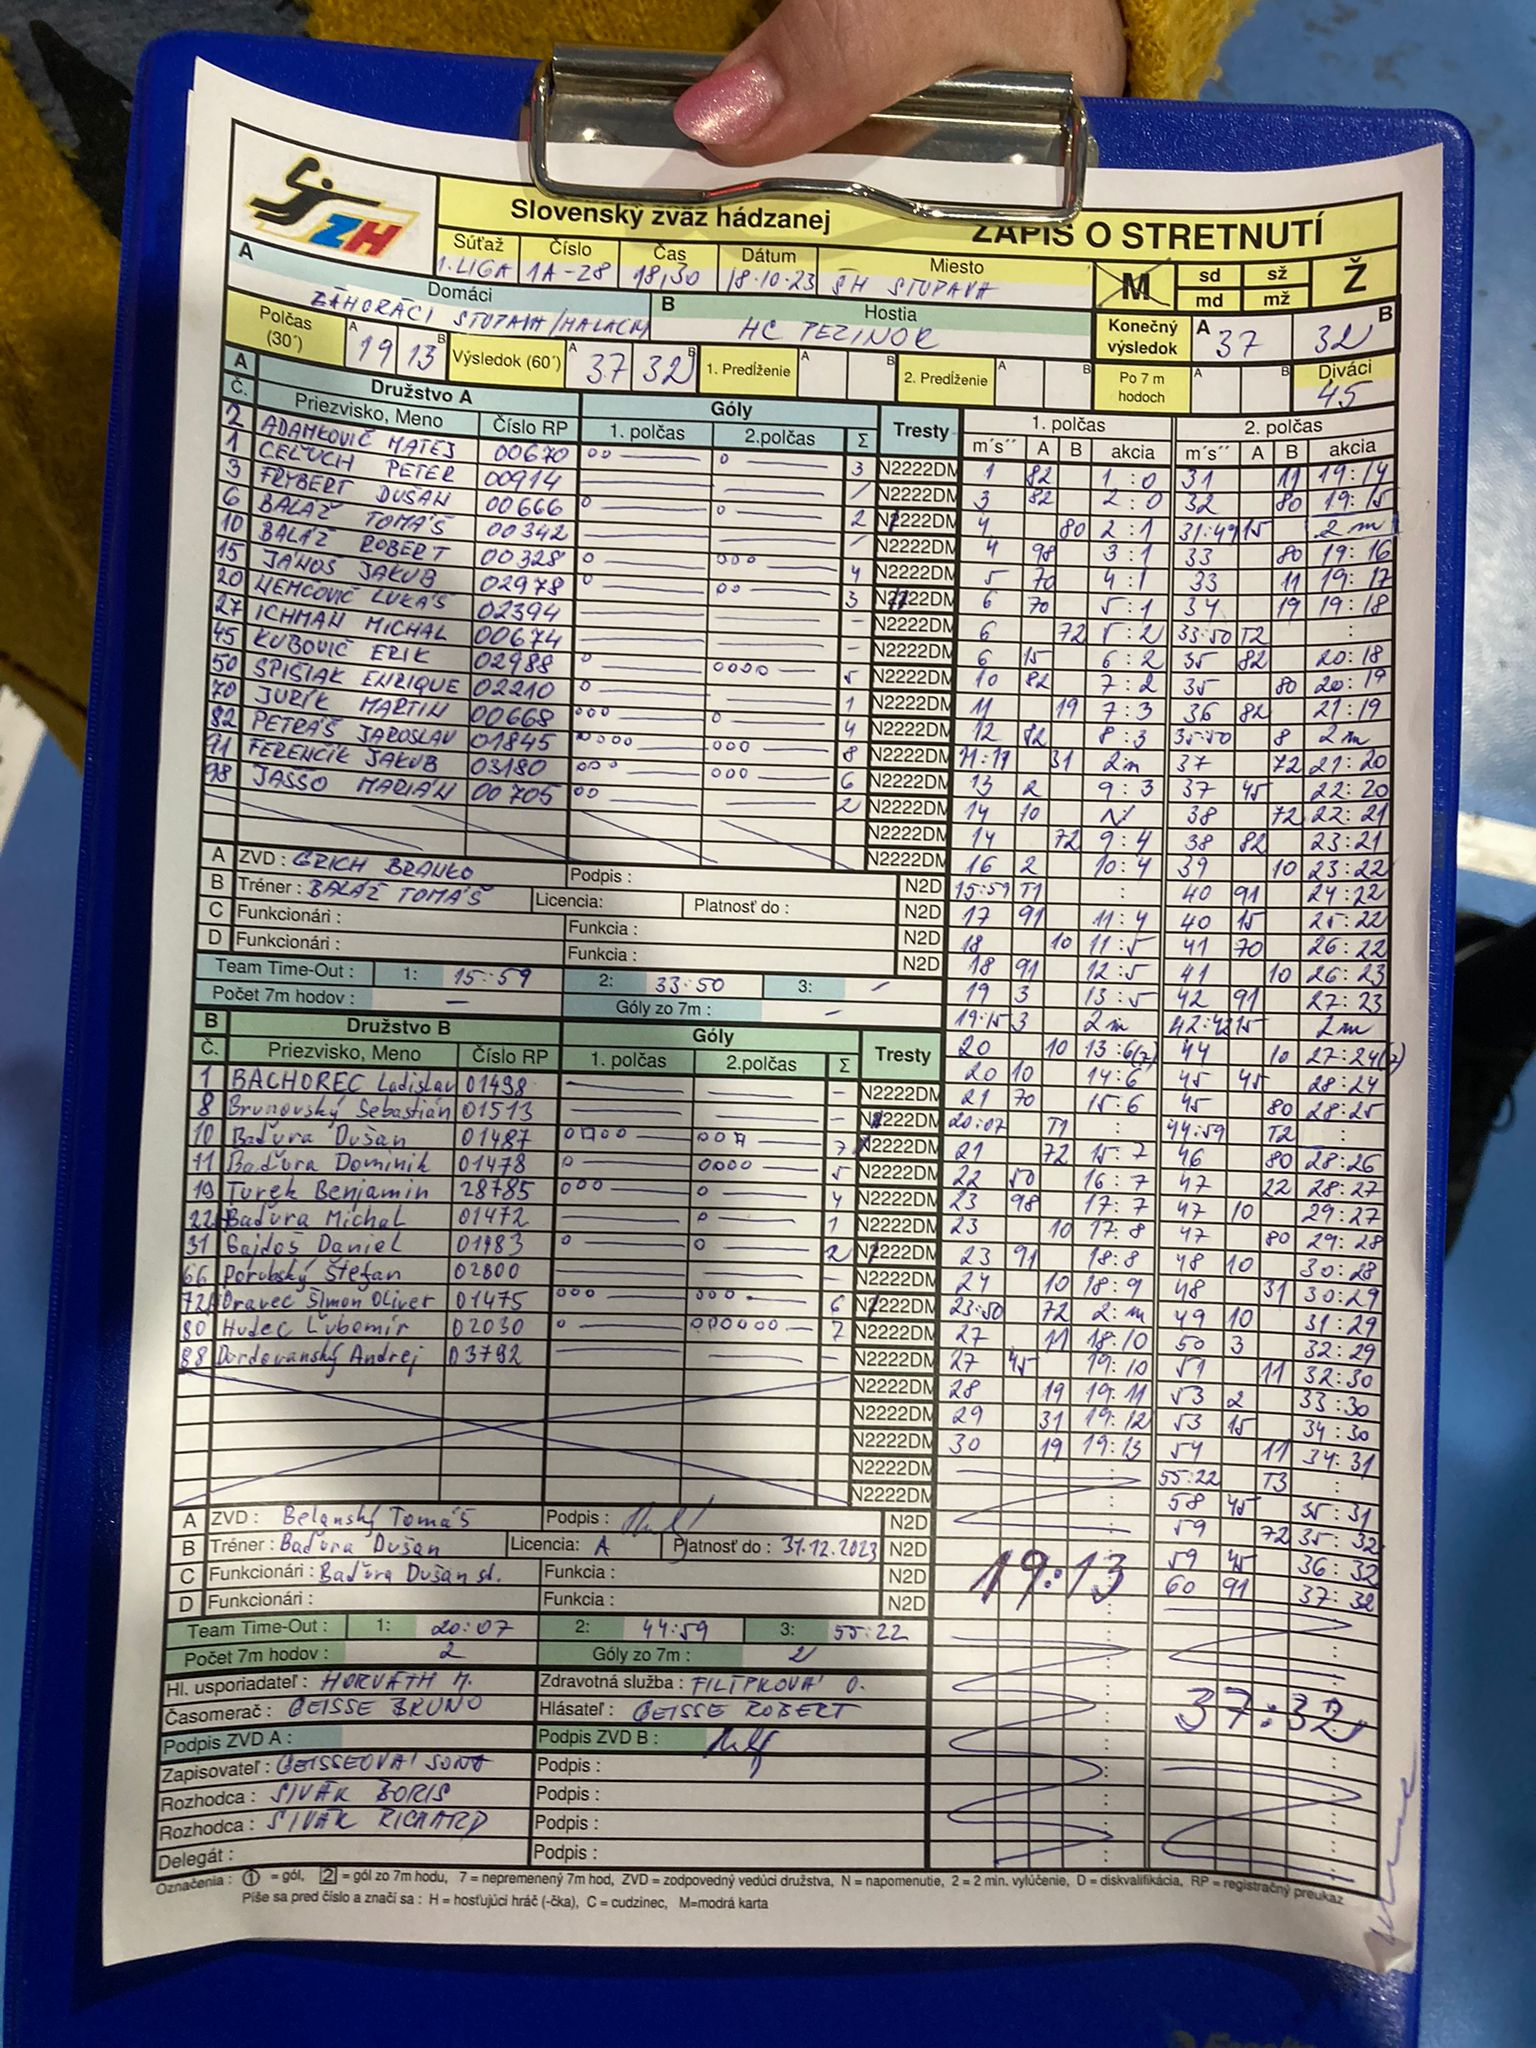 SZH
Slovenský zväz hádzanej
ZÁPIS O STRETNUTÍ
Súťaž Číslo Čas Dátum Miesto
1. LIGA 1A-28 18,30 18.10.23 ŠH STUPAVA
M sd sž Ž
md mž
A Domáci B Hostia
ZÁHORÁCI STUPAVA/MALACKY HC PEZINOK
Konečný výsledok A 37 32 B
Polčas (30´) A 19 13 B Výsledok (60´) A 37 32 B 1. Predĺženie A B 2. Predĺženie A B Po 7 m hodoch A B Diváci 45
A Družstvo A Góly Tresty
Č. Priezvisko, Meno Číslo RP 1. polčas 2.polčas Σ
2 ADAMKOVIČ MATEJ 00670 3 N2222DM
1 CEĽUCH PETER 00914 N2222DM
3 FRYBERT DUŠAN 00666 2 N2222DM
6 BALÁŽ TOMÁŠ 00342 N2222DM
10 BALÁŽ ROBERT 00328 4 N2222DM
15 JÁNOŠ JAKUB 02978 3 N2222DM
20 NEMČOVIČ LUKÁŠ 02394 - N2222DM
27 ICHMAN MICHAL 00674 - N2222DM
45 KUBOVIČ ERIK 02988 5 N2222DM
50 SPIŠIAK ENRIQUE 02210 1 N2222DM
70 JURÍK MARTIN 00668 4 N2222DM
82 PETRÁŠ JAROSLAV 01845 8 N2222DM
91 FERENČÍK JAKUB 03180 6 N2222DM
98 JAŠŠO MARIÁN 00705 2 N2222DM
N2222DM
N2222DM
A ZVD : GRICH BRANKO Podpis : N2D
B Tréner : BALÁŽ TOMÁŠ Licencia: Platnosť do : N2D
C Funkcionári : Funkcia : N2D
D Funkcionári : Funkcia : N2D
Team Time-Out : 1: 15:59 2: 33:50 3: -
Počet 7m hodov : - Góly zo 7m : -
B Družstvo B Góly Tresty
Č. Priezvisko, Meno Číslo RP 1. polčas 2.polčas Σ
1 BACHOREC Ladislav 01498 - N2222DM
8 Brunovský Sebastián 01513 - N2222DM
10 Baďura Dušan 01487 7 N2222DM
11 Baďura Dominik 01478 5 N2222DM
19 Turek Benjamin 28785 4 N2222DM
22 Baďura Michal 01472 1 N2222DM
31 Gajdoš Daniel 01983 2 N2222DM
66 Porubský Štefan 02800 - N2222DM
72 Oravec Šimon Oliver 01475 6 N2222DM
80 Hudec Ľubomír 02030 7 N2222DM
88 Dordovanský Andrej 03792 - N2222DM
N2222DM
N2222DM
N2222DM
N2222DM
N2222DM
A ZVD : Belanský Tomáš Podpis : N2D
B Tréner : Baďura Dušan Licencia: A Platnosť do : 31.12.2023 N2D
C Funkcionári : Baďura Dušan st. Funkcia : N2D
D Funkcionári : Funkcia : N2D
Team Time-Out : 1: 20:07 2: 44:59 3: 55:22
Počet 7m hodov : 2 Góly zo 7m : 2
Hl. usporiadateľ : HORVÁTH M. Zdravotná služba : FILÍPKOVÁ O.
Časomerač : GEISSE BRUNO Hlásateľ : GEISSE ROBERT
Podpis ZVD A : Podpis ZVD B :
Zapisovateľ : GEISSEOVÁ SOŇA Podpis :
Rozhodca : SIVÁK BORIS Podpis :
Rozhodca : SIVÁK RICHARD Podpis :
Delegát : Podpis :
1. polčas
m´s´´ A B akcia
1 82 1:0
3 82 2:0
4 80 2:1
4 98 3:1
5 70 4:1
6 70 5:1
6 72 5:2
6 15 6:2
10 82 7:2
11 19 7:3
12 82 8:3
11:19 31 2m
13 2 9:3
14 10 N
14 72 9:4
16 2 10:4
15:59 T1 :
17 91 11:4
18 10 11:5
18 91 12:5
19 3 13:5
19:15 3 2m
20 10 13:6(7)
20 10 14:6
21 70 15:6
20:07 T1 :
21 72 15:7
22 50 16:7
23 98 17:7
23 10 17:8
23 91 18:8
24 10 18:9
23:50 72 2m
27 11 18:10
27 45 19:10
28 19 19:11
29 31 19:12
30 19 19:13
19:13
2. polčas
m´s´´ A B akcia
31 11 19:14
32 80 19:15
31:49 15 2m
33 80 19:16
33 11 19:17
34 19 19:18
33:50 T2 :
35 82 20:18
35 80 20:19
36 82 21:19
35:50 8 2m
37 72 21:20
37 45 22:20
38 72 22:21
38 82 23:21
39 10 23:22
40 91 24:22
40 15 25:22
41 70 26:22
41 10 26:23
42 91 27:23
42:42 15 2m
44 10 27:24(7)
45 45 28:24
45 80 28:25
44:59 T2 :
46 80 28:26
47 22 28:27
47 10 29:27
47 80 29:28
48 10 30:28
48 31 30:29
49 10 31:29
50 3 32:29
51 11 32:30
53 2 33:30
53 15 34:30
54 11 34:31
55:22 T3 :
58 45 35:31
59 72 35:32
59 45 36:32
60 91 37:32
37:32
Označenia : 1 = gól, 2 = gól zo 7m hodu, 7 = nepremenený 7m hod, ZVD = zodpovedný vedúci družstva, N = napomenutie, 2 = 2 min. vylúčenie, D = diskvalifikácia, RP = registračný preukaz
Píše sa pred číslo a značí sa : H = hosťujúci hráč (-čka), C = cudzinec, M=modrá karta